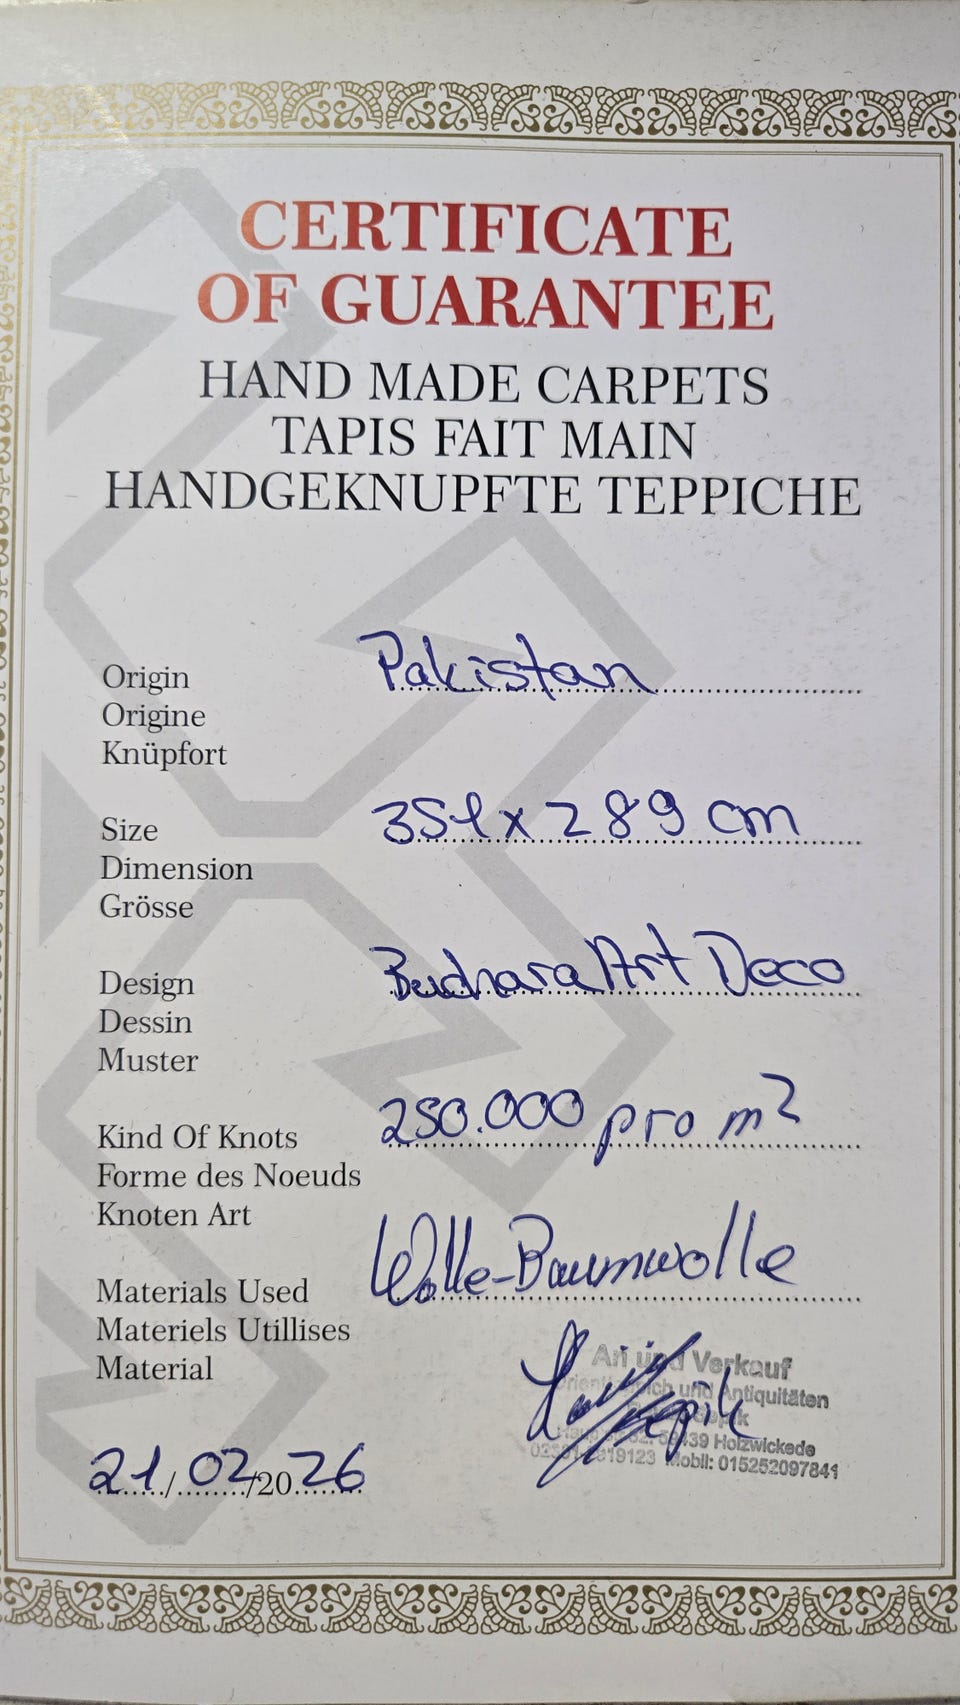 CERTIFICATE
OF GUARANTEE
HAND MADE CARPETS
TAPIS FAIT MAIN
HANDGEKNUPFTE TEPPICHE
Origin Pakistan
Origine
Knüpfort
Size 351 x 289 cm
Dimension
Grösse
Design Buchara Art Deco
Dessin
Muster
Kind Of Knots 250.000 pro m²
Forme des Noeuds
Knoten Art
Materials Used Wolle-Baumwolle
Materiels Utillises
Material
An und Verkauf
und Antiquitäten
59439 Holzwickede
Mobil: 015252097841
21/02/2026